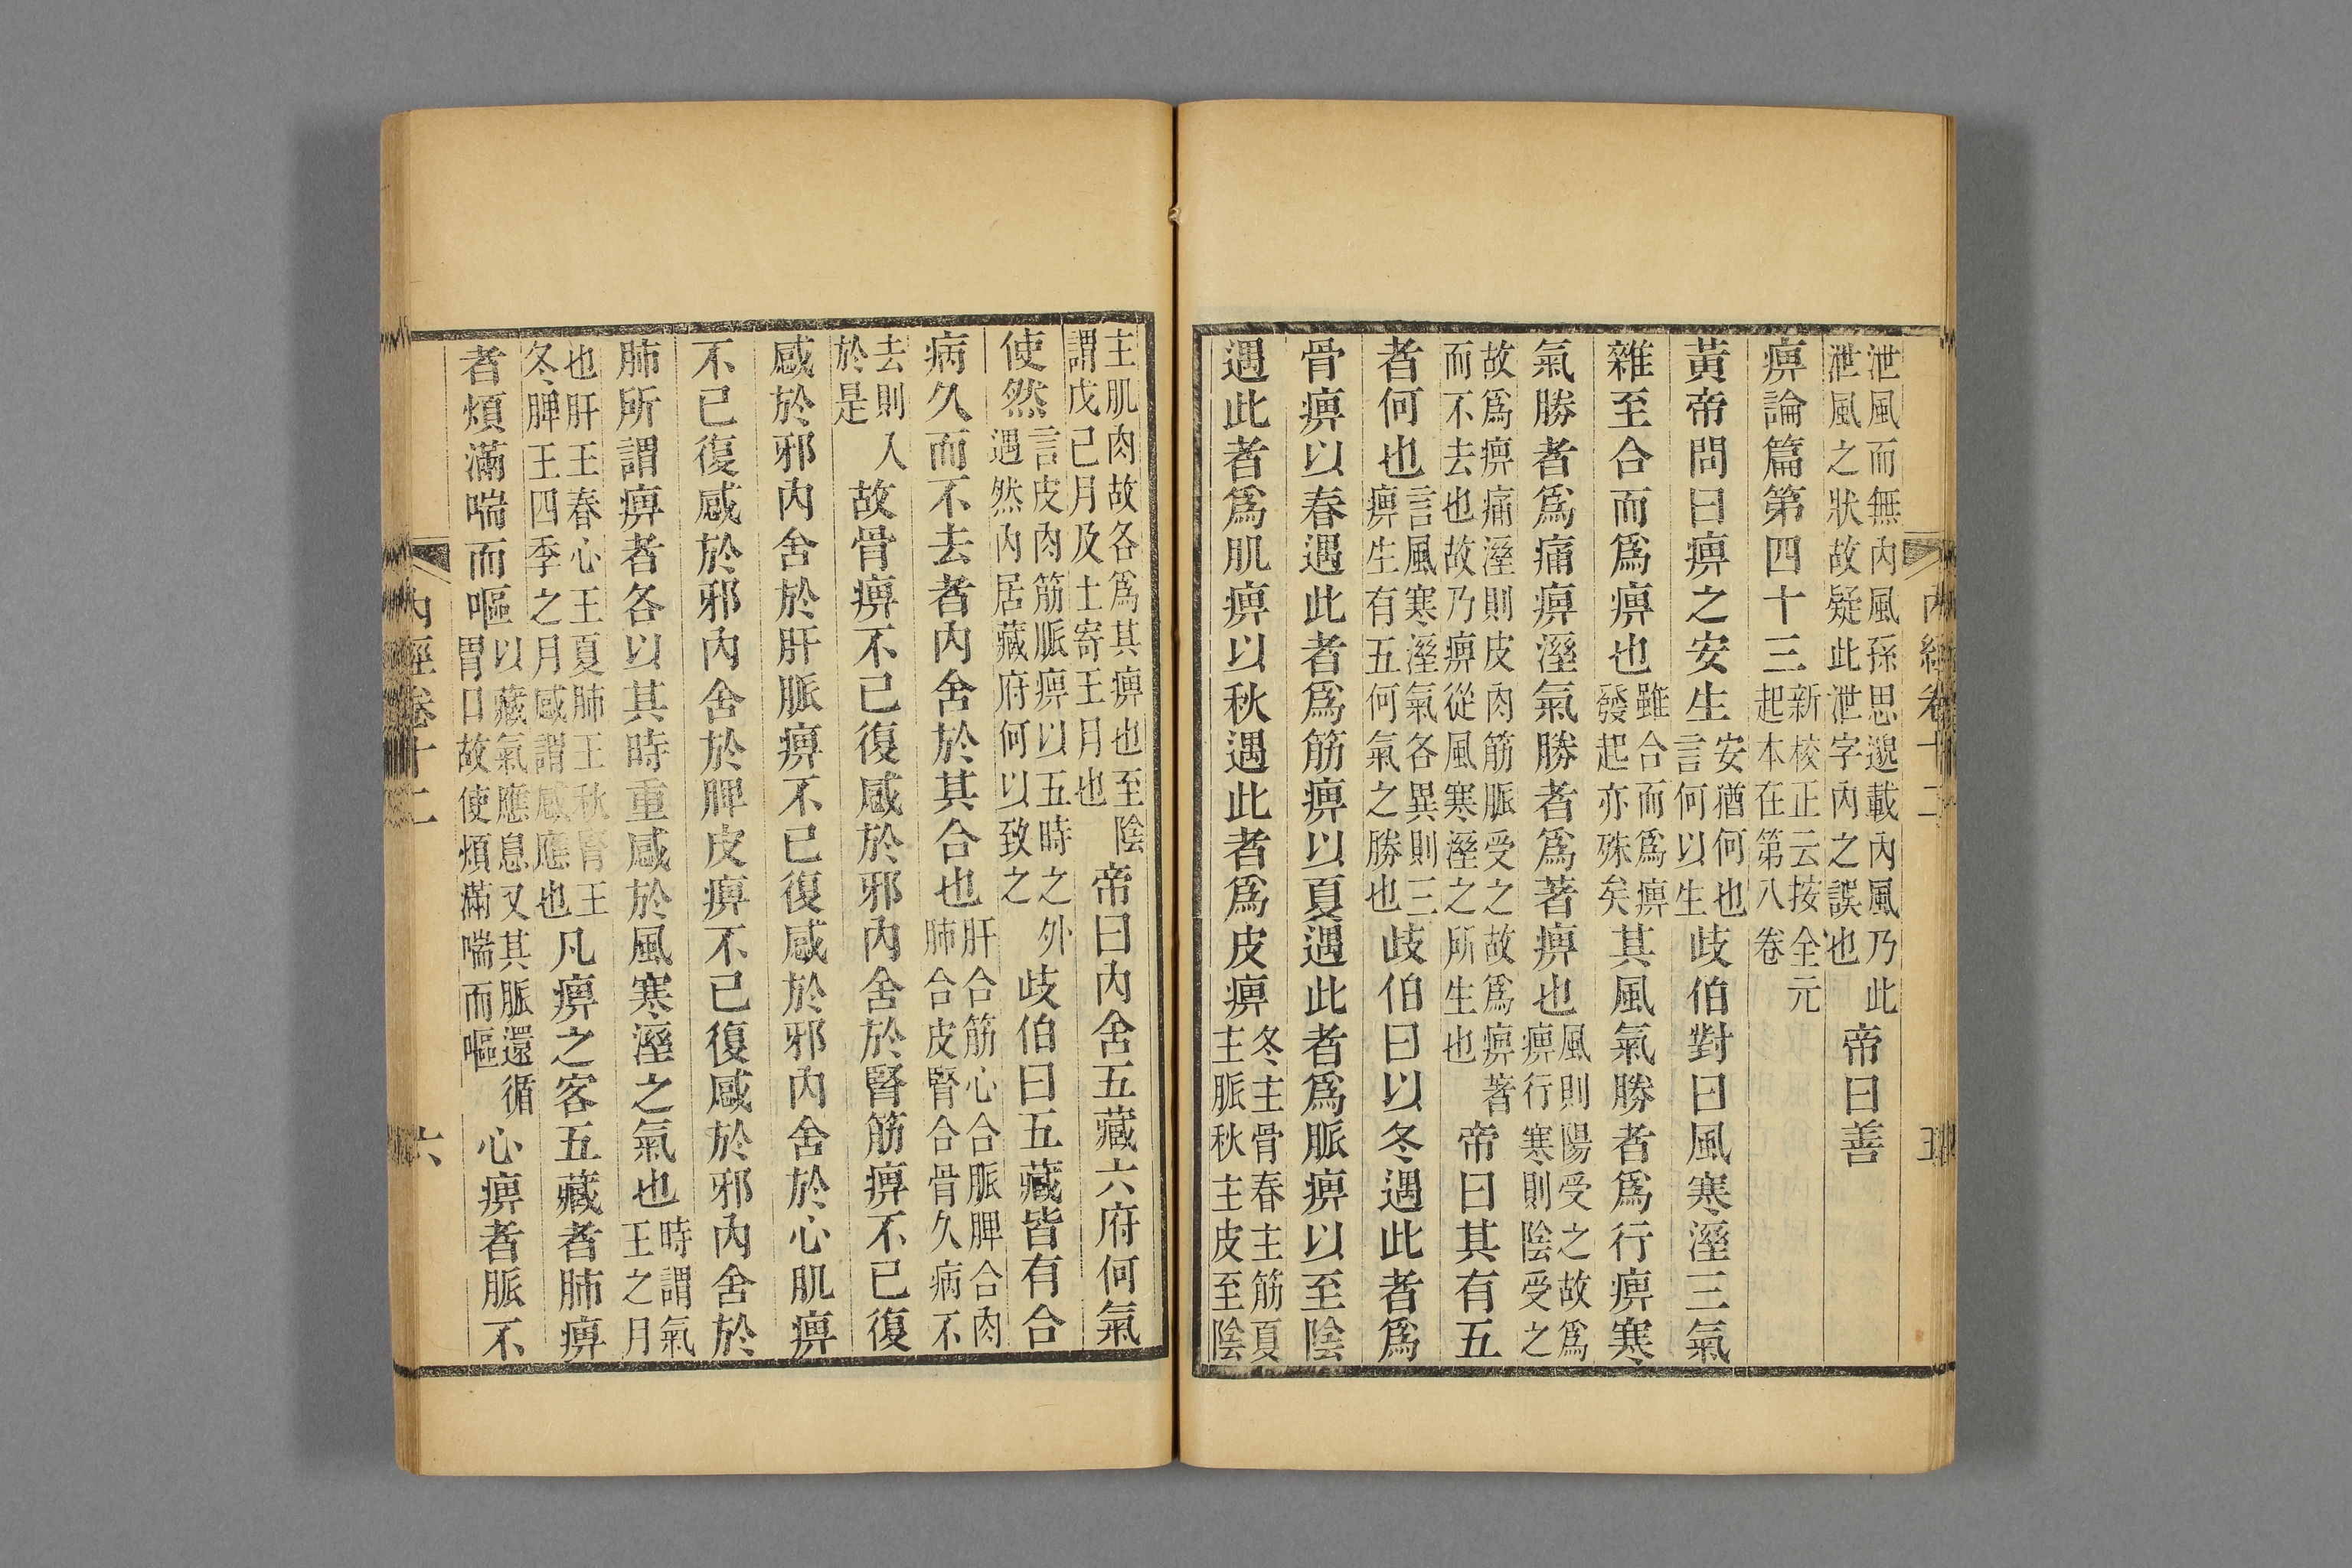 內經卷十二 五
泄風而無內風孫思邈載內風乃此泄風之狀故疑此泄字內之誤也帝曰善
痺論篇第四十三新校正云按全元起本在第八卷
黃帝問曰痺之安生安猶何也言何以生歧伯對曰風寒溼三氣
雜至合而爲痺也雖合而爲痺發起亦殊矣其風氣勝者爲行痺寒
氣勝者爲痛痺溼氣勝者爲著痺也風則陽受之故爲痺行寒則陰受之
故爲痺痛溼則皮肉筋脈受之故爲痺著而不去也故乃痺從風寒溼之所生也帝曰其有五
者何也言風寒溼氣各異則三痺生有五何氣之勝也歧伯曰以冬遇此者爲
骨痺以春遇此者爲筋痺以夏遇此者爲脈痺以至陰
遇此者爲肌痺以秋遇此者爲皮痺冬主骨春主筋夏主脈秋主皮至陰
主肌肉故各爲其痺也至陰謂戊己月及土寄王月也帝曰內舍五藏六府何氣
使然言皮肉筋脈痺以五時之外遇然內居藏府何以致之歧伯曰五藏皆有合
病久而不去者內舍於其合也肝合筋心合脈脾合肉肺合皮腎合骨久病不
去則入於是故骨痺不已復感於邪內舍於腎筋痺不已復
感於邪內舍於肝脈痺不已復感於邪內舍於心肌痺
不已復感於邪內舍於脾皮痺不已復感於邪內舍於
肺所謂痺者各以其時重感於風寒溼之氣也時謂氣王之月
也肝王春心王夏肺王秋腎王冬脾王四季之月感謂感應也凡痺之客五藏者肺痺
者煩滿喘而嘔以藏氣應息又其脈還循胃口故使煩滿喘而嘔心痺者脈不
內經卷十二 六